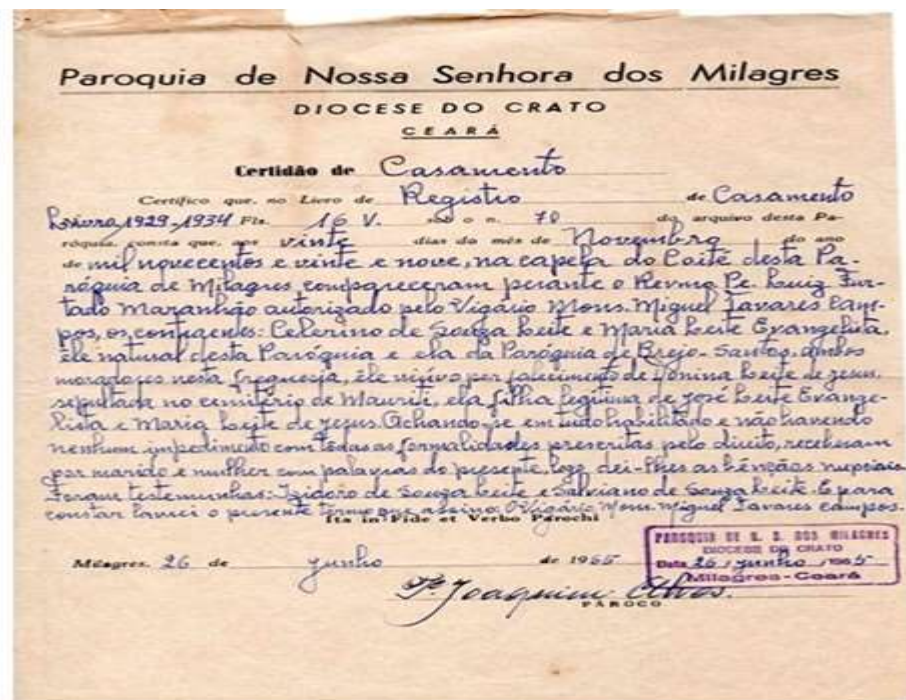 Paroquia de Nossa Senhora dos Milagres
DIOCESE DO CRATO
CEARÁ
Certidão de Casamento
Certifico que, no Livro de Registro de Casamento
1929-1934 Fls. 16 V. sob o n. 70 do arquivo desta Pa-
róquia, consta que, aos vinte dias do mês de Novembro do ano
de mil novecentos e vinte e nove, na capela do Coité desta Pa-
róquia de Milagres compareceram perante o Revmo Pe. Luiz Fur-
tado Maranhão autorizado pelo Vigário Mons. Miguel Tavares Cam-
pos, os contraentes: Celerino de Souza Leite e Maria Leite Evangelista,
êle natural desta Paróquia e ela da Paróquia de Brejo-Santos, ambos
moradores nesta freguesia, êle viúvo por falecimento de Leite de Jesus,
sepultada no cemitério de Mauriti, ela filha legítima de José Leite Evange-
lista e Maria Leite de Jesus. Achando-se em tudo habilitado e não havendo
nenhum impedimento com todas as formalidades prescritas pelo direito, receberam
por marido e mulher com palavras do presente, logo dei-lhes as bênçãos nupciais.
Foram testemunhas: Izidoro de Souza Leite e Salviano de Souza Leite. E para
constar lancei o presente termo que assino. O Vigário Mons. Miguel Tavares Campos.
Ita in Fide et Verbo Parochi
Milagres, 26 de junho de 1965
PAROQUIA DE N. S. DOS MILAGRES
DIOCESE DO CRATO
Data 26 / junho / 1965
Milagres - Ceará
Pe. Joaquim Alves.
PÁROCO